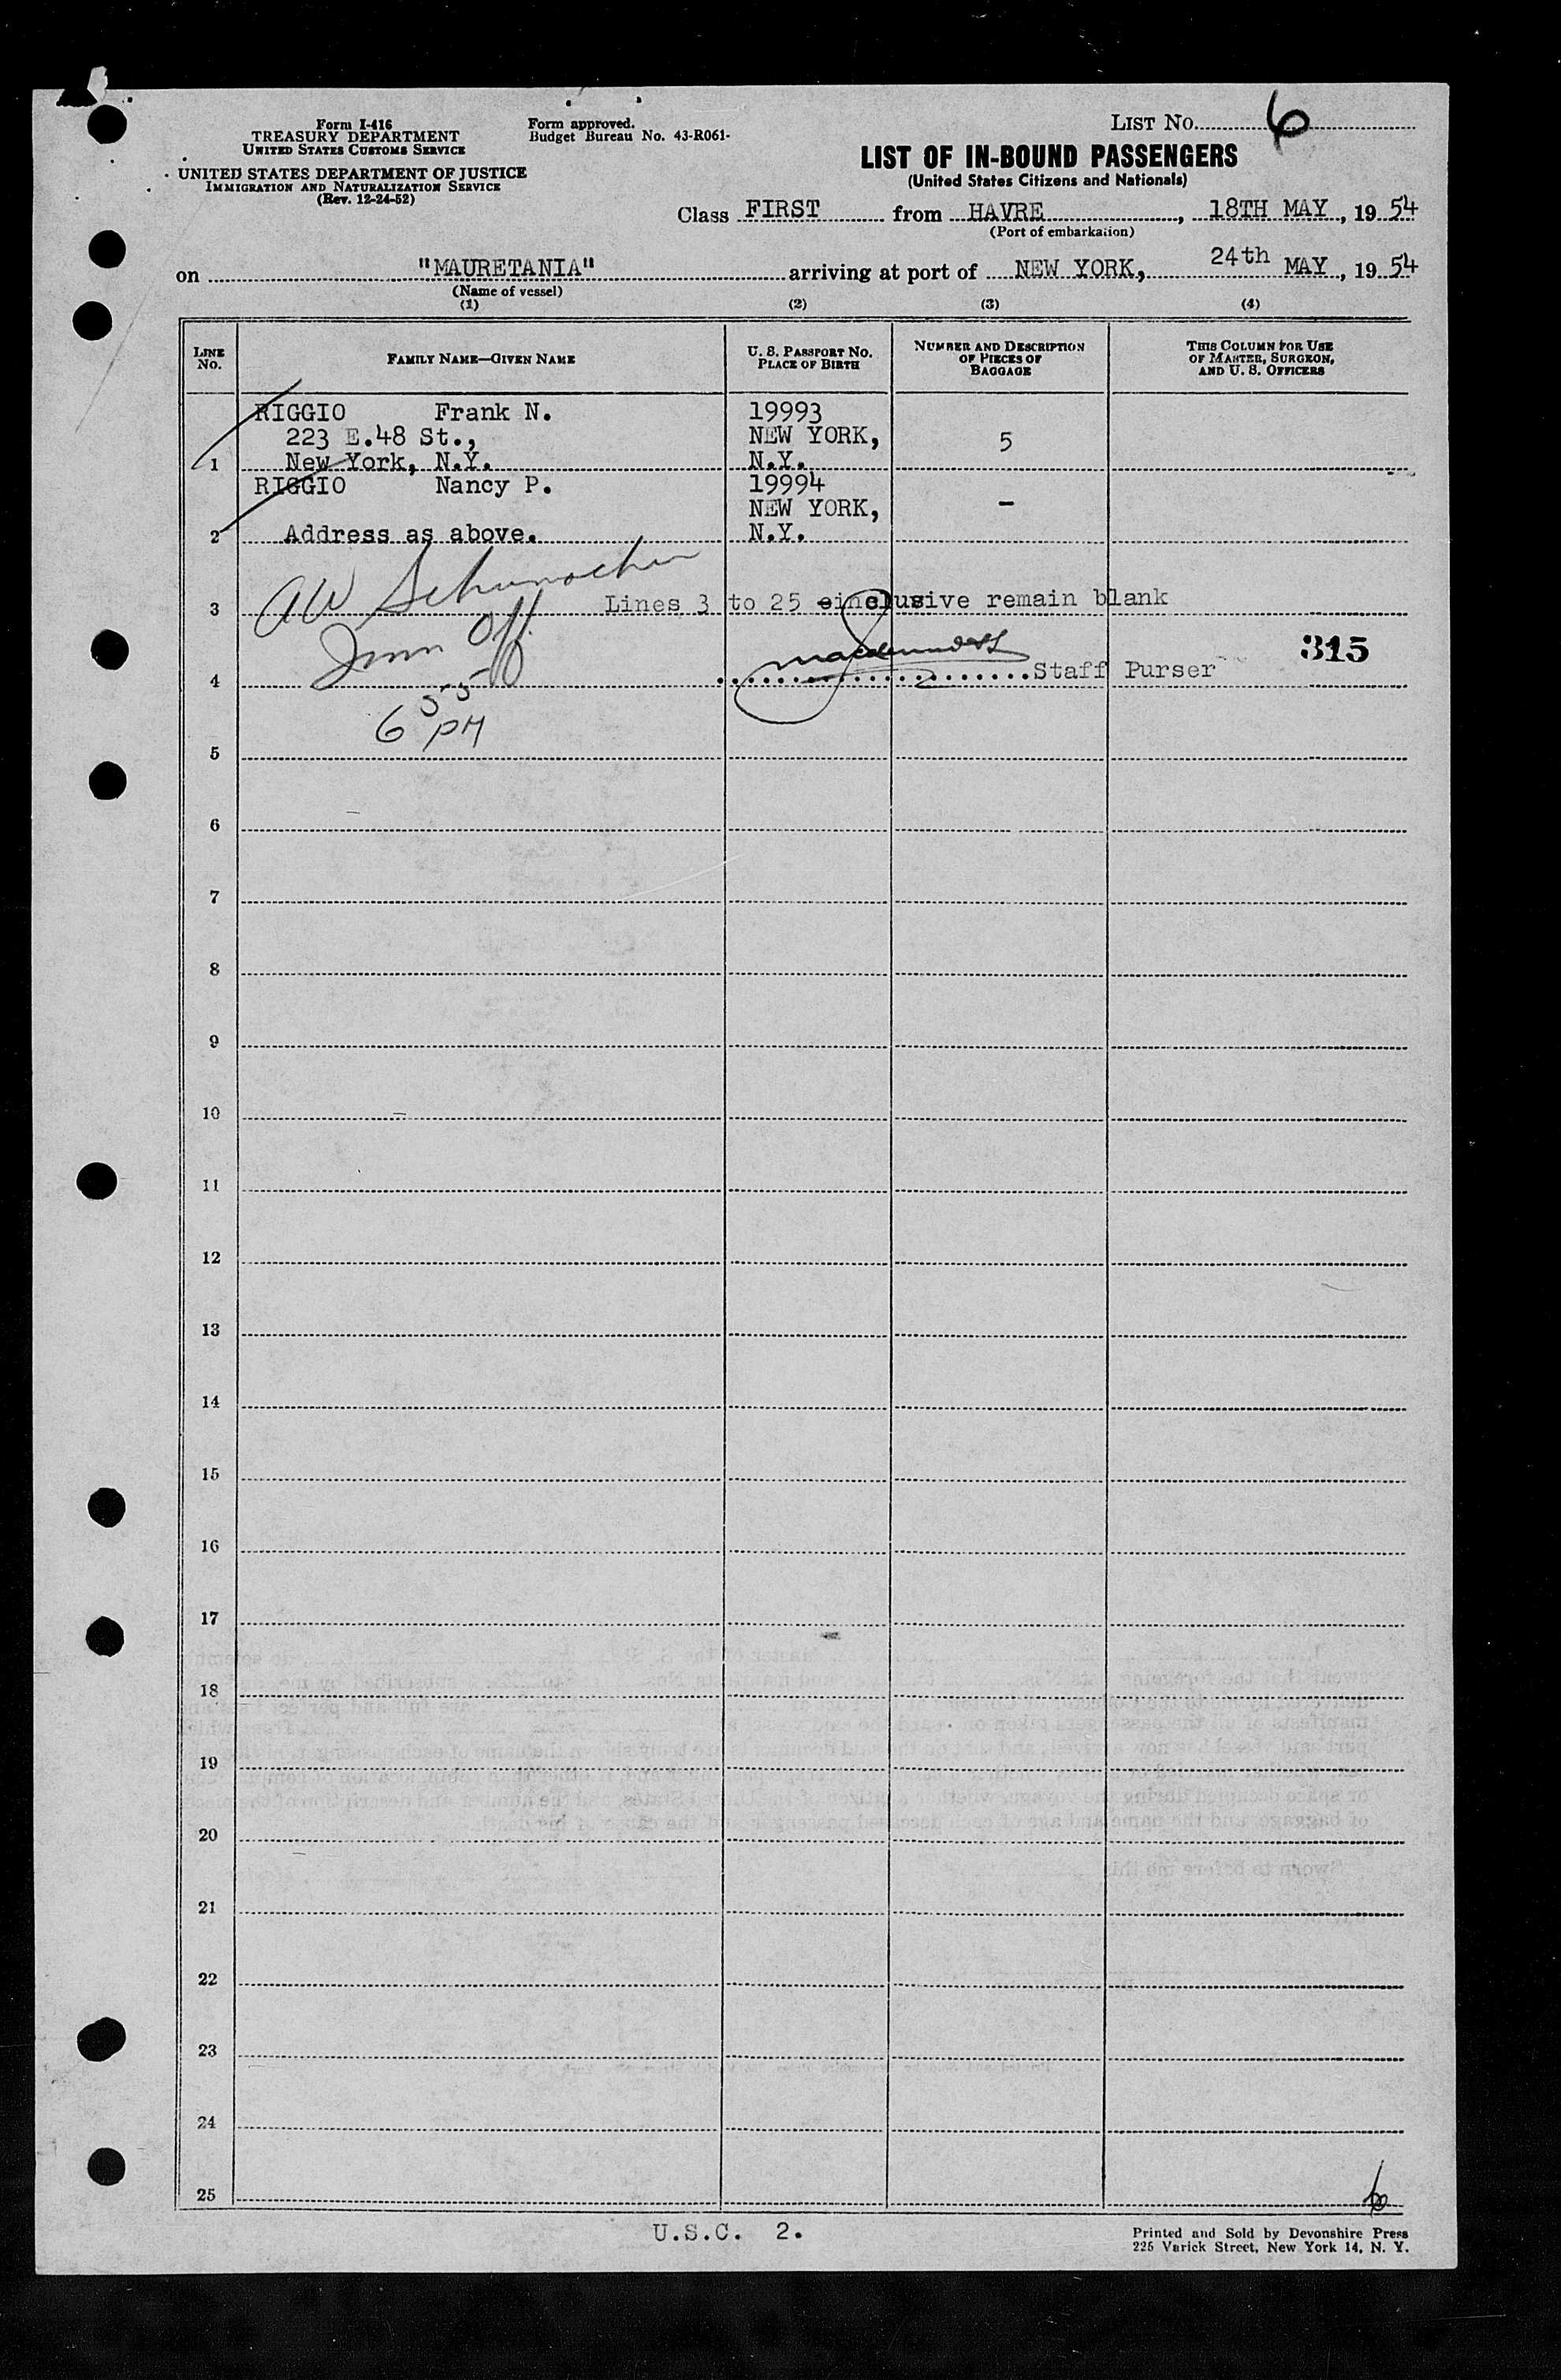 Form I-416
TREASURY DEPARTMENT
UNITED STATES CUSTOMS SERVICE
UNITED STATES DEPARTMENT OF JUSTICE
IMMIGRATION AND NATURALIZATION SERVICE
(Rev. 12-24-52)
Form approved.
Budget Bureau No. 43-R061-
LIST No. 6
LIST OF IN-BOUND PASSENGERS
(United States Citizens and Nationals)
Class FIRST from HAVRE, 18TH MAY, 1954
(Port of embarkation)
on "MAURETANIA" arriving at port of NEW YORK, 24th MAY, 1954
(Name of vessel)
(1) (2) (3) (4)
LINE No. FAMILY NAME—GIVEN NAME U. S. PASSPORT NO. PLACE OF BIRTH NUMBER AND DESCRIPTION OF PIECES OF BAGGAGE THIS COLUMN FOR USE OF MASTER, SURGEON, AND U. S. OFFICERS
RIGGIO Frank N. 19993
223 E.48 St., NEW YORK, 5
1 New York, N.Y. N.Y.
RIGGIO Nancy P. 19994
NEW YORK, -
2 Address as above. N.Y.
AW Schumacher
3 Lines 3 to 25 inclusive remain blank
Imm Off
315
4 Staff Purser
6 55 PM
5
6
7
8
9
10
11
12
13
14
15
16
17
18
19
20
21
22
23
24
25
6
U.S.C. 2.
Printed and Sold by Devonshire Press
225 Varick Street, New York 14, N. Y.